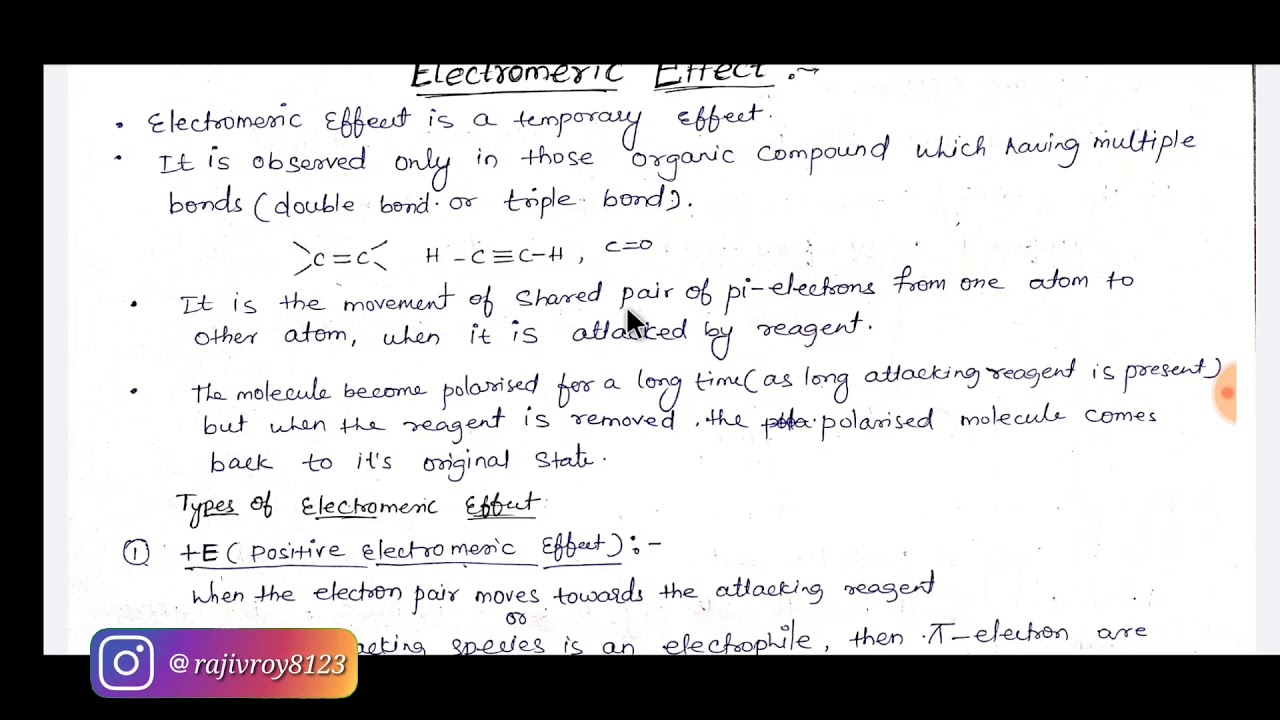 Electromeric Effect :~
• Electromeric Effeect is a temporary effect.
• It is observed only in those organic compound which having multiple
bonds (double bond or triple bond).
>C=C< H-C≡C-H, C=O
• It is the movement of shared pair of pi-electrons from one atom to
other atom, when it is attacked by reagent.
• The molecule become polarised for a long time (as long attacking reagent is present)
but when the reagent is removed, the polarised molecule comes
back to it's original state.
Types of Electromeric Effect
① +E (Positive Electromeric Effect) :-
When the electron pair moves towards the attacking reagent
or
species is an electrophile, then π-electron are
@rajivroy8123